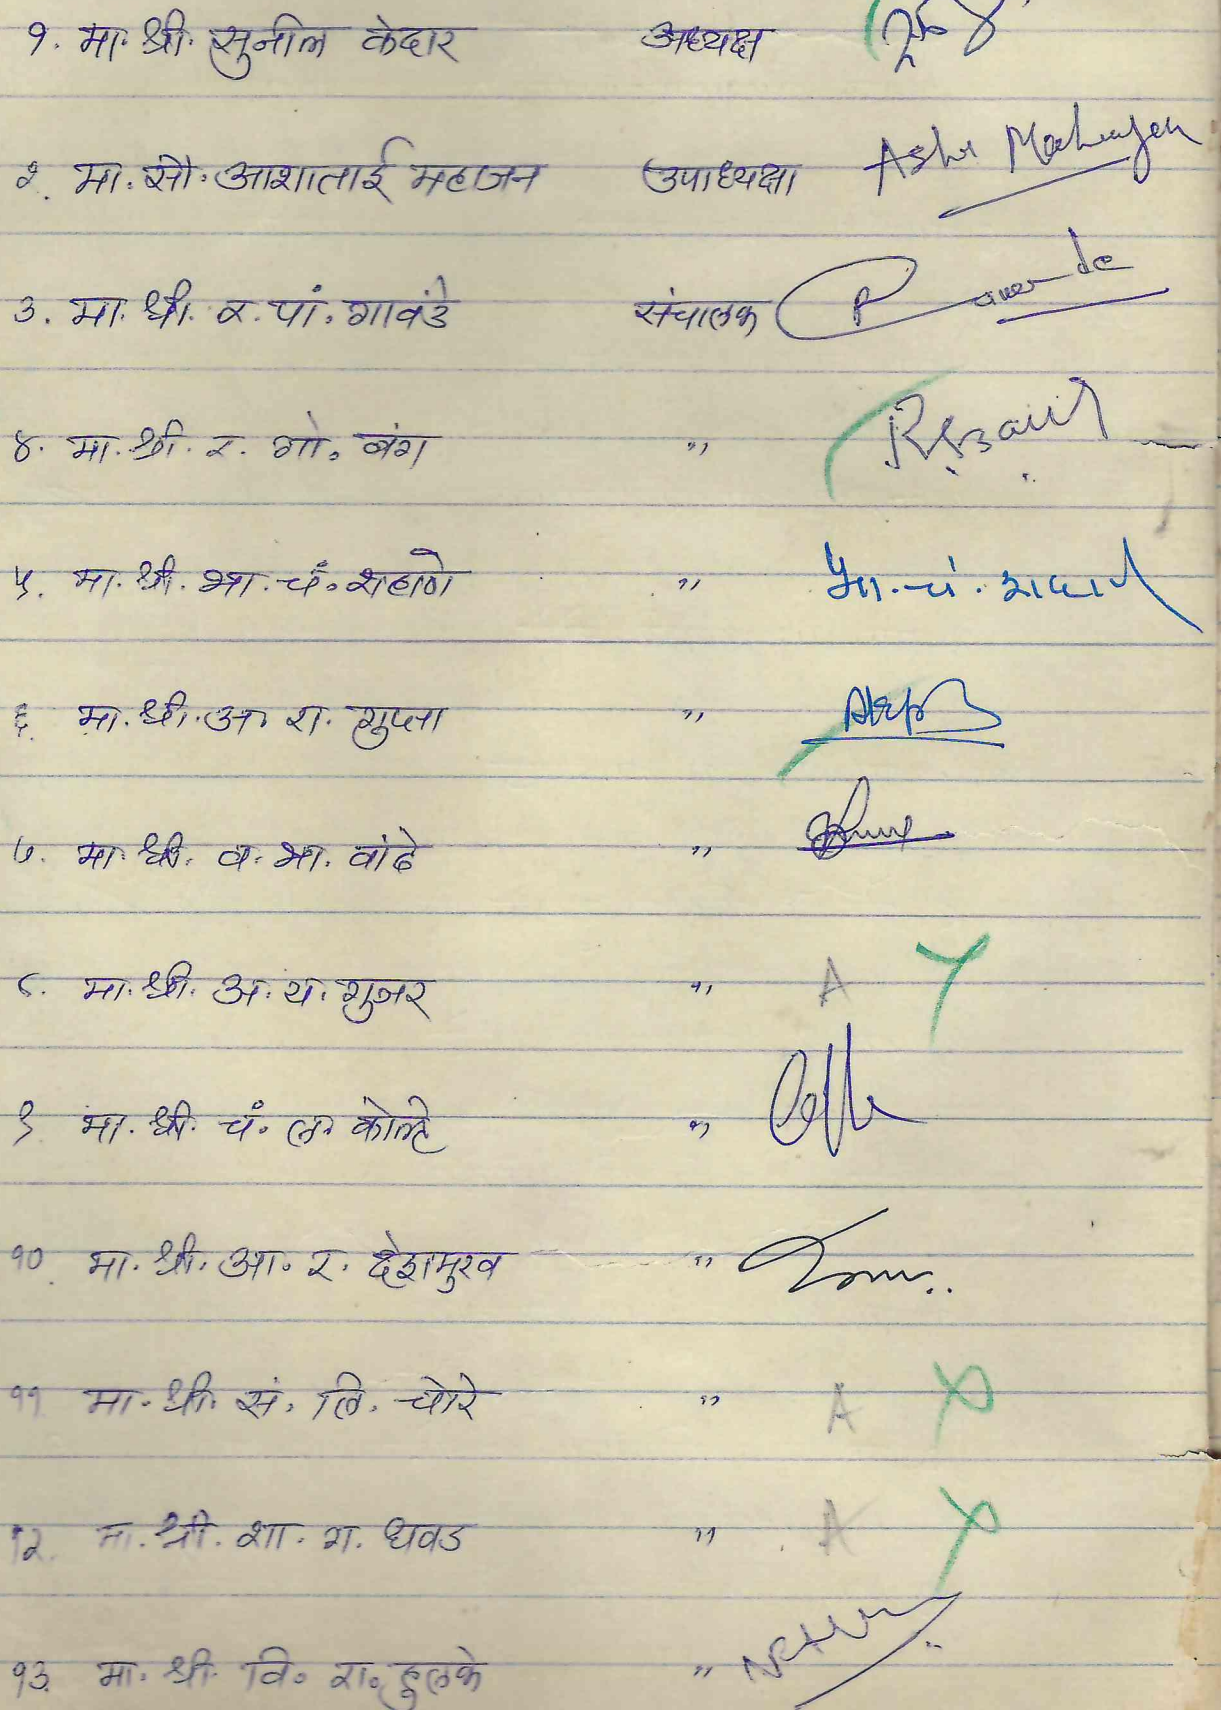 १. मा. श्री. सुनील केदार अध्यक्ष
२. मा. सौ. आशाताई महाजन उपाध्यक्षा Asha Mahajan
३. मा. श्री. र. पां. गावंडे संचालक
४. मा. श्री. र. गो. बंग " RGBang
५. मा. श्री. भा. चं. शहाणे " भा. चं. शहाणे
६. मा. श्री. अ. रा. गुप्ता "
७. मा. श्री. व. भा. वांढे "
८. मा. श्री. अ. य. गुजर " A
९. मा. श्री. चं. ल. कोल्हे "
१०. मा. श्री. आ. र. देशमुख "
११. मा. श्री. सं. लि. चोरे " A
१२. मा. श्री. शा. ग. धवड " A
१३. मा. श्री. वि. रा. हुलके "